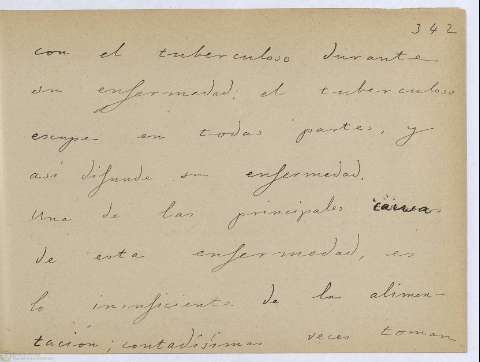 342
con el tuberculoso durante
su enfermedad; el tuberculoso
escupe en todas partes, y
así difunde su enfermedad.
Una de las principales causas
de esta enfermedad, es
lo insuficiente de la alimen-
tación; contadísimas veces toman